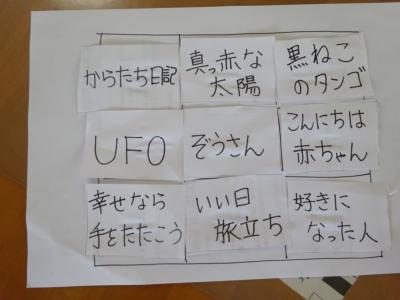 からたち日記
真っ赤な
太陽
黒ねこ
のタンゴ
UFO
ぞうさん
こんにちは
赤ちゃん
幸せなら
手をたたこう
いい日
旅立ち
好きに
なった人